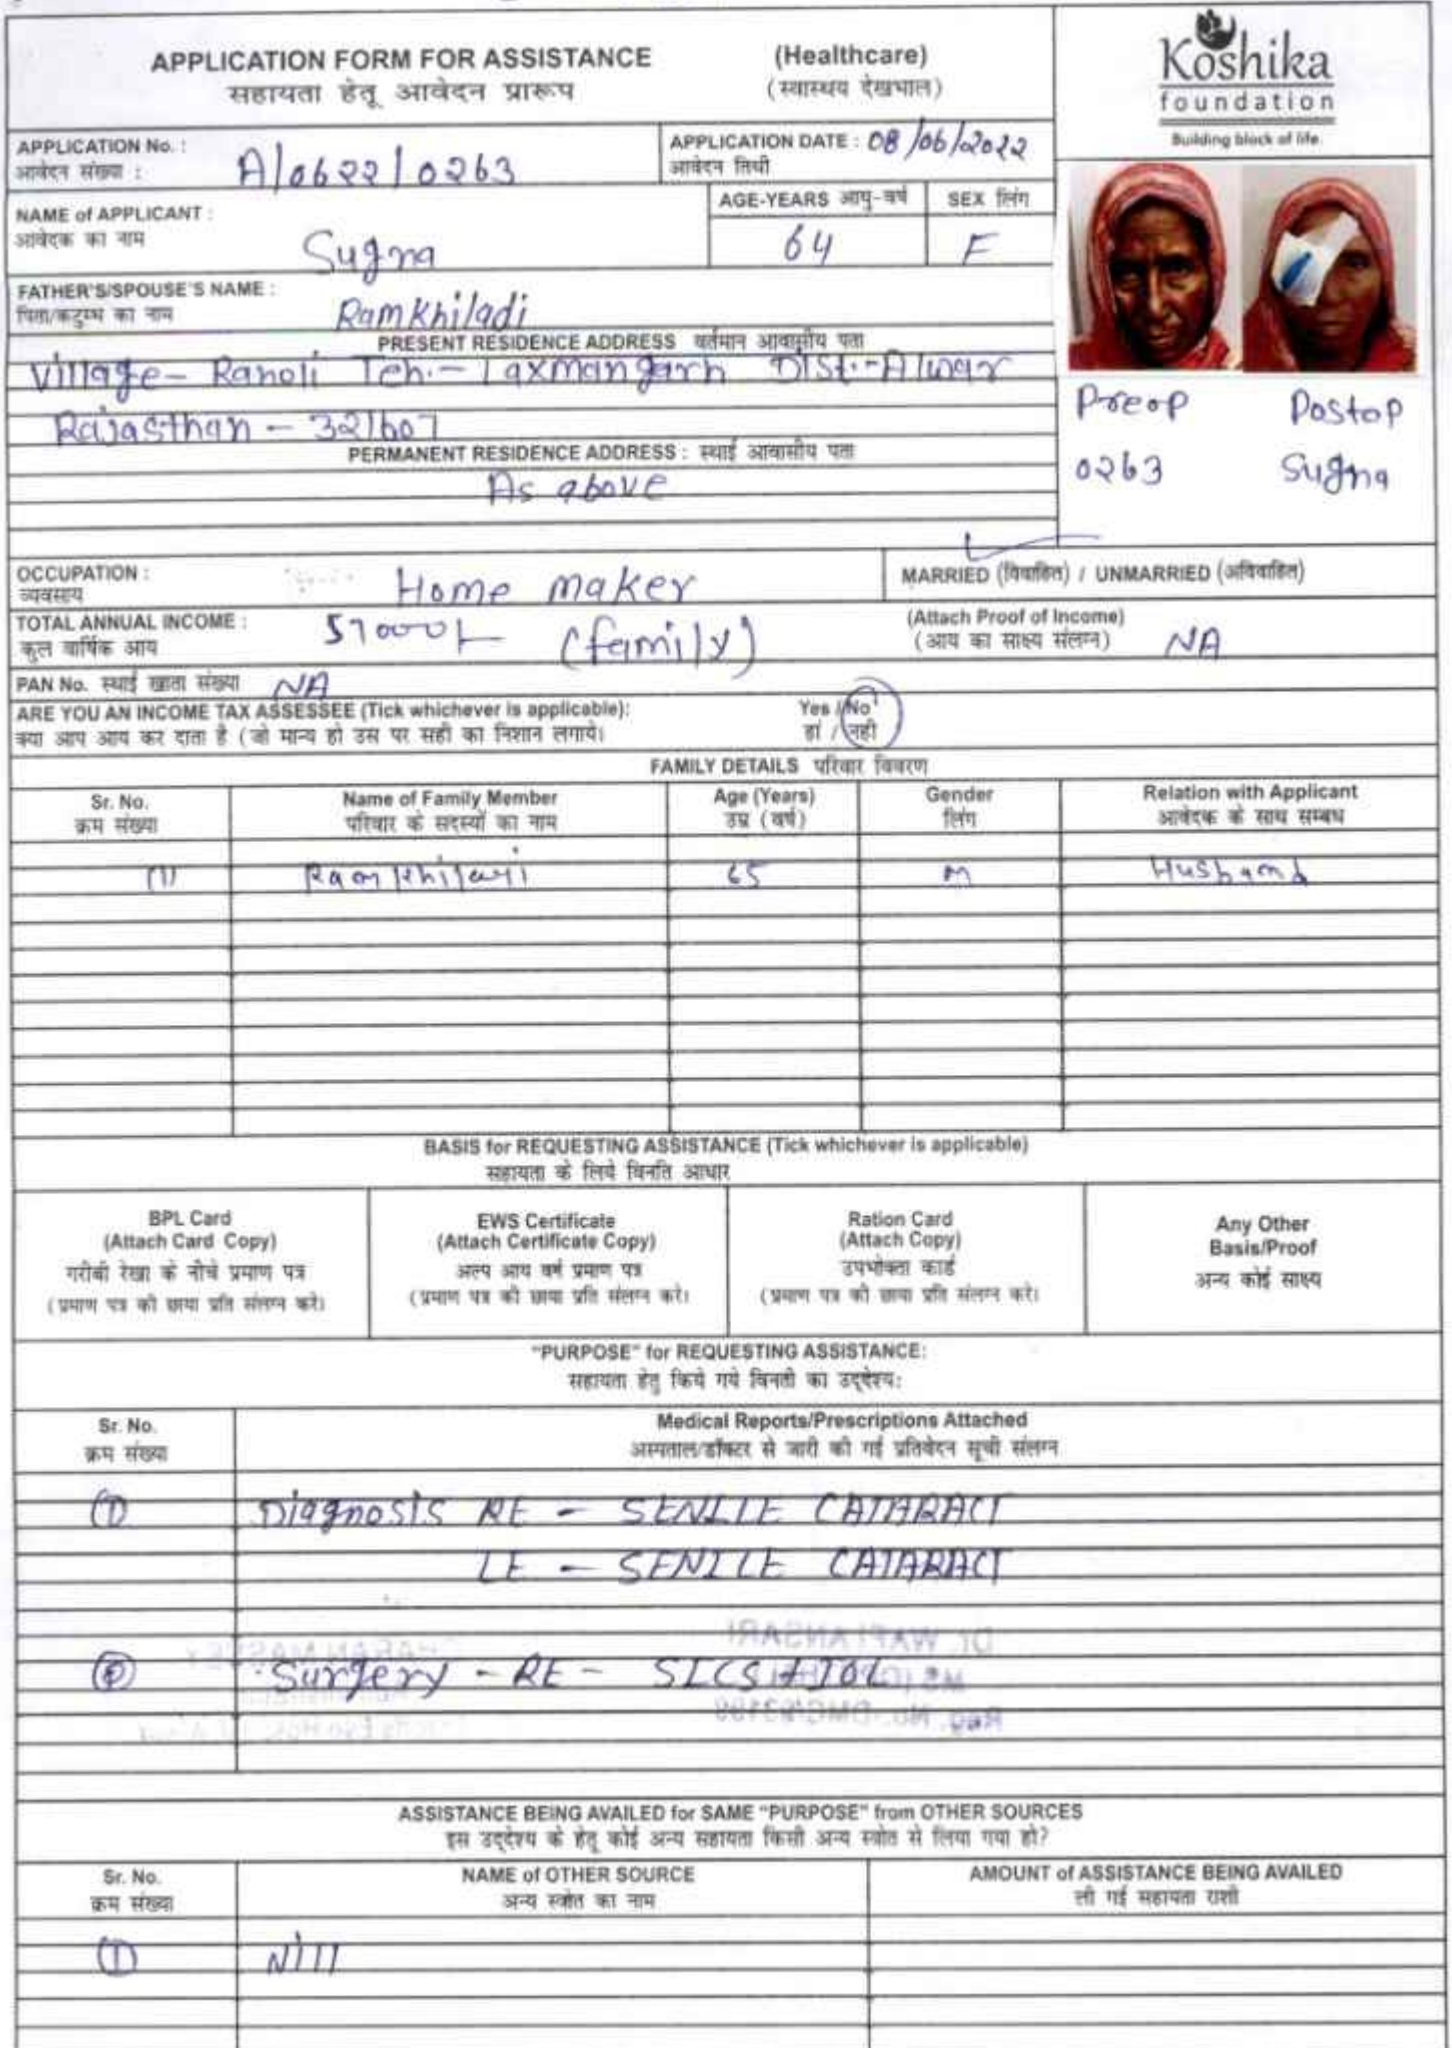 APPLICATION FORM FOR ASSISTANCE (Healthcare)
सहायता हेतू आवेदन प्रारूप (स्वास्थय देखभाल)
Koshika
foundation
Building block of life.
APPLICATION No. : A/0622/0263
आवेदन संख्या :
APPLICATION DATE : 08/06/2022
आवेदन तिथी
NAME of APPLICANT : Sugna
आवेदक का नाम
AGE-YEARS आयु-वर्ष 64
SEX लिंग F
FATHER'S/SPOUSE'S NAME : RamKhiladi
पिता/कटुम्ब का नाम
PRESENT RESIDENCE ADDRESS वर्तमान आवासीय पता
Village- Ranoli Teh.- Laxmangarh Dist.-Alwar
Rajasthan - 321607
PERMANENT RESIDENCE ADDRESS : स्थाई आवासीय पता
As above
Preop Postop
0263 Sugna
OCCUPATION : Home maker
व्यवसाय
MARRIED (विवाहित) / UNMARRIED (अविवाहित)
TOTAL ANNUAL INCOME : 57000/- (family)
कुल वार्षिक आय
(Attach Proof of Income)
(आय का साक्ष्य संलग्न) NA
PAN No. स्थाई खाता संख्या NA
ARE YOU AN INCOME TAX ASSESSEE (Tick whichever is applicable): Yes / No
क्या आप आय कर दाता है (जो मान्य हो उस पर सही का निशान लगाये। हां / नही
FAMILY DETAILS परिवार विवरण
Sr. No. Name of Family Member Age (Years) Gender Relation with Applicant
क्रम संख्या परिवार के सदस्यों का नाम उम्र (वर्ष) लिंग आवेदक के साथ सम्बध
(1) Ramkhilari 65 M Husband
BASIS for REQUESTING ASSISTANCE (Tick whichever is applicable)
सहायता के लिये विनति आधार
BPL Card
(Attach Card Copy)
गरीबी रेखा के नीचे प्रमाण पत्र
(प्रमाण पत्र की छाया प्रति संलग्न करे)
EWS Certificate
(Attach Certificate Copy)
अल्प आय वर्ग प्रमाण पत्र
(प्रमाण पत्र की छाया प्रति संलग्न करे।
Ration Card
(Attach Copy)
उपभोक्ता कार्ड
(प्रमाण पत्र की छाया प्रति संलग्न करे।
Any Other
Basis/Proof
अन्य कोई साक्ष्य
"PURPOSE" for REQUESTING ASSISTANCE:
सहायता हेतु किये गये विनती का उद्देश्य:
Sr. No. Medical Reports/Prescriptions Attached
क्रम संख्या अस्पताल/डॉक्टर से जारी की गई प्रतिवेदन सूची संलग्न
(1) Diagnosis RE - SENILE CATARACT
LE - SENILE CATARACT
(2) Surgery - RE - SICS+IOL
Dr. WAFI ANSARI
ASSISTANCE BEING AVAILED for SAME "PURPOSE" from OTHER SOURCES
इस उद्देश्य के हेतू कोई अन्य सहायता किसी अन्य स्त्रोत से लिया गया हो?
Sr. No. NAME of OTHER SOURCE AMOUNT of ASSISTANCE BEING AVAILED
क्रम संख्या अन्य स्त्रोत का नाम ली गई सहायता राशी
(1) Nill